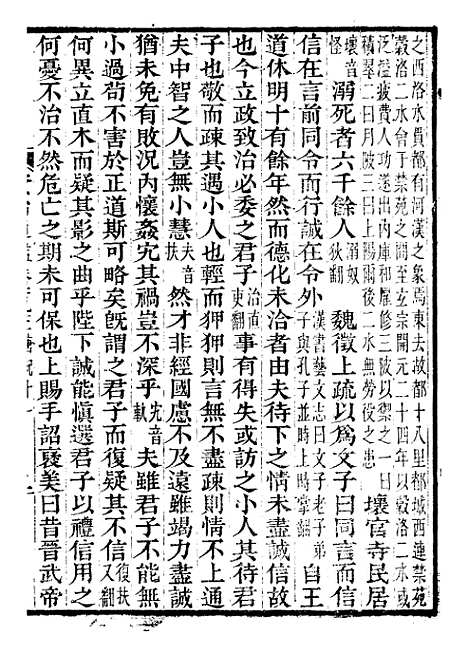 之西洛水貫都有河漢之象焉東去故都十八里都城西連禁苑
穀洛二水會于禁苑之間至玄宗開元二十四年以穀洛二水或
泛溢疲費人功遂出内庫和雇修三陂以禦之一曰
積翠二曰月陂三曰上陽爾後二水無勞役之患壞官寺民居
壞音怪溺死者六千餘人溺奴狄翻魏徵上疏以爲文子曰同言而信
信在言前同令而行誠在令外漢書藝文志曰文子老子弟子與孔子並時上時掌翻自王
道休明十有餘年然而德化未洽者由夫待下之情未盡誠信
也今立政致治必委之君子治直吏翻事有得失或訪之小人其待君
子也敬而疎其遇小人也輕而狎狎則言無不盡疎則情不上通
夫中智之人豈無小慧夫音扶然才非經國慮不及遠雖竭力盡誠
猶未免有敗況内懷姦宄其禍豈不深乎宄音軌夫雖君子不能無
小過苟不害於正道斯可略矣既謂之君子而復疑其不信復扶又翻
何異立直木而疑其影之曲乎陛下誠能愼選君子以禮信用之
何憂不治不然危亡之期未可保也上賜手詔褒美曰昔晉武帝